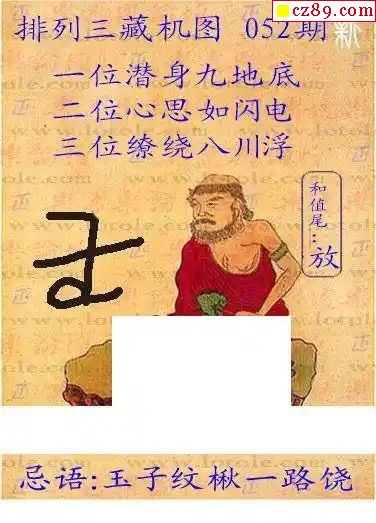 cz89.com
排列三藏机图 052期
新
一位潜身九地底
二位心思如闪电
三位缭绕八川浮
和值尾:放
www.lotole.com
忌语:玉子纹楸一路饶